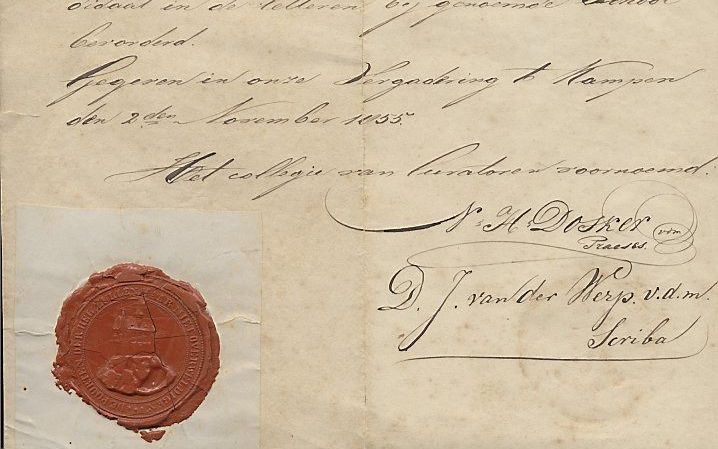 didaat in de letteren bij genoemde School
bevorderd.
Gegeven in onze Vergadering te Kampen
den 2den November 1855.
Het collegie van Curatoren voornoemd.
N. H. Dosker vdm
Praeses.
D. J. van der Werp. v.d.m.
Scriba